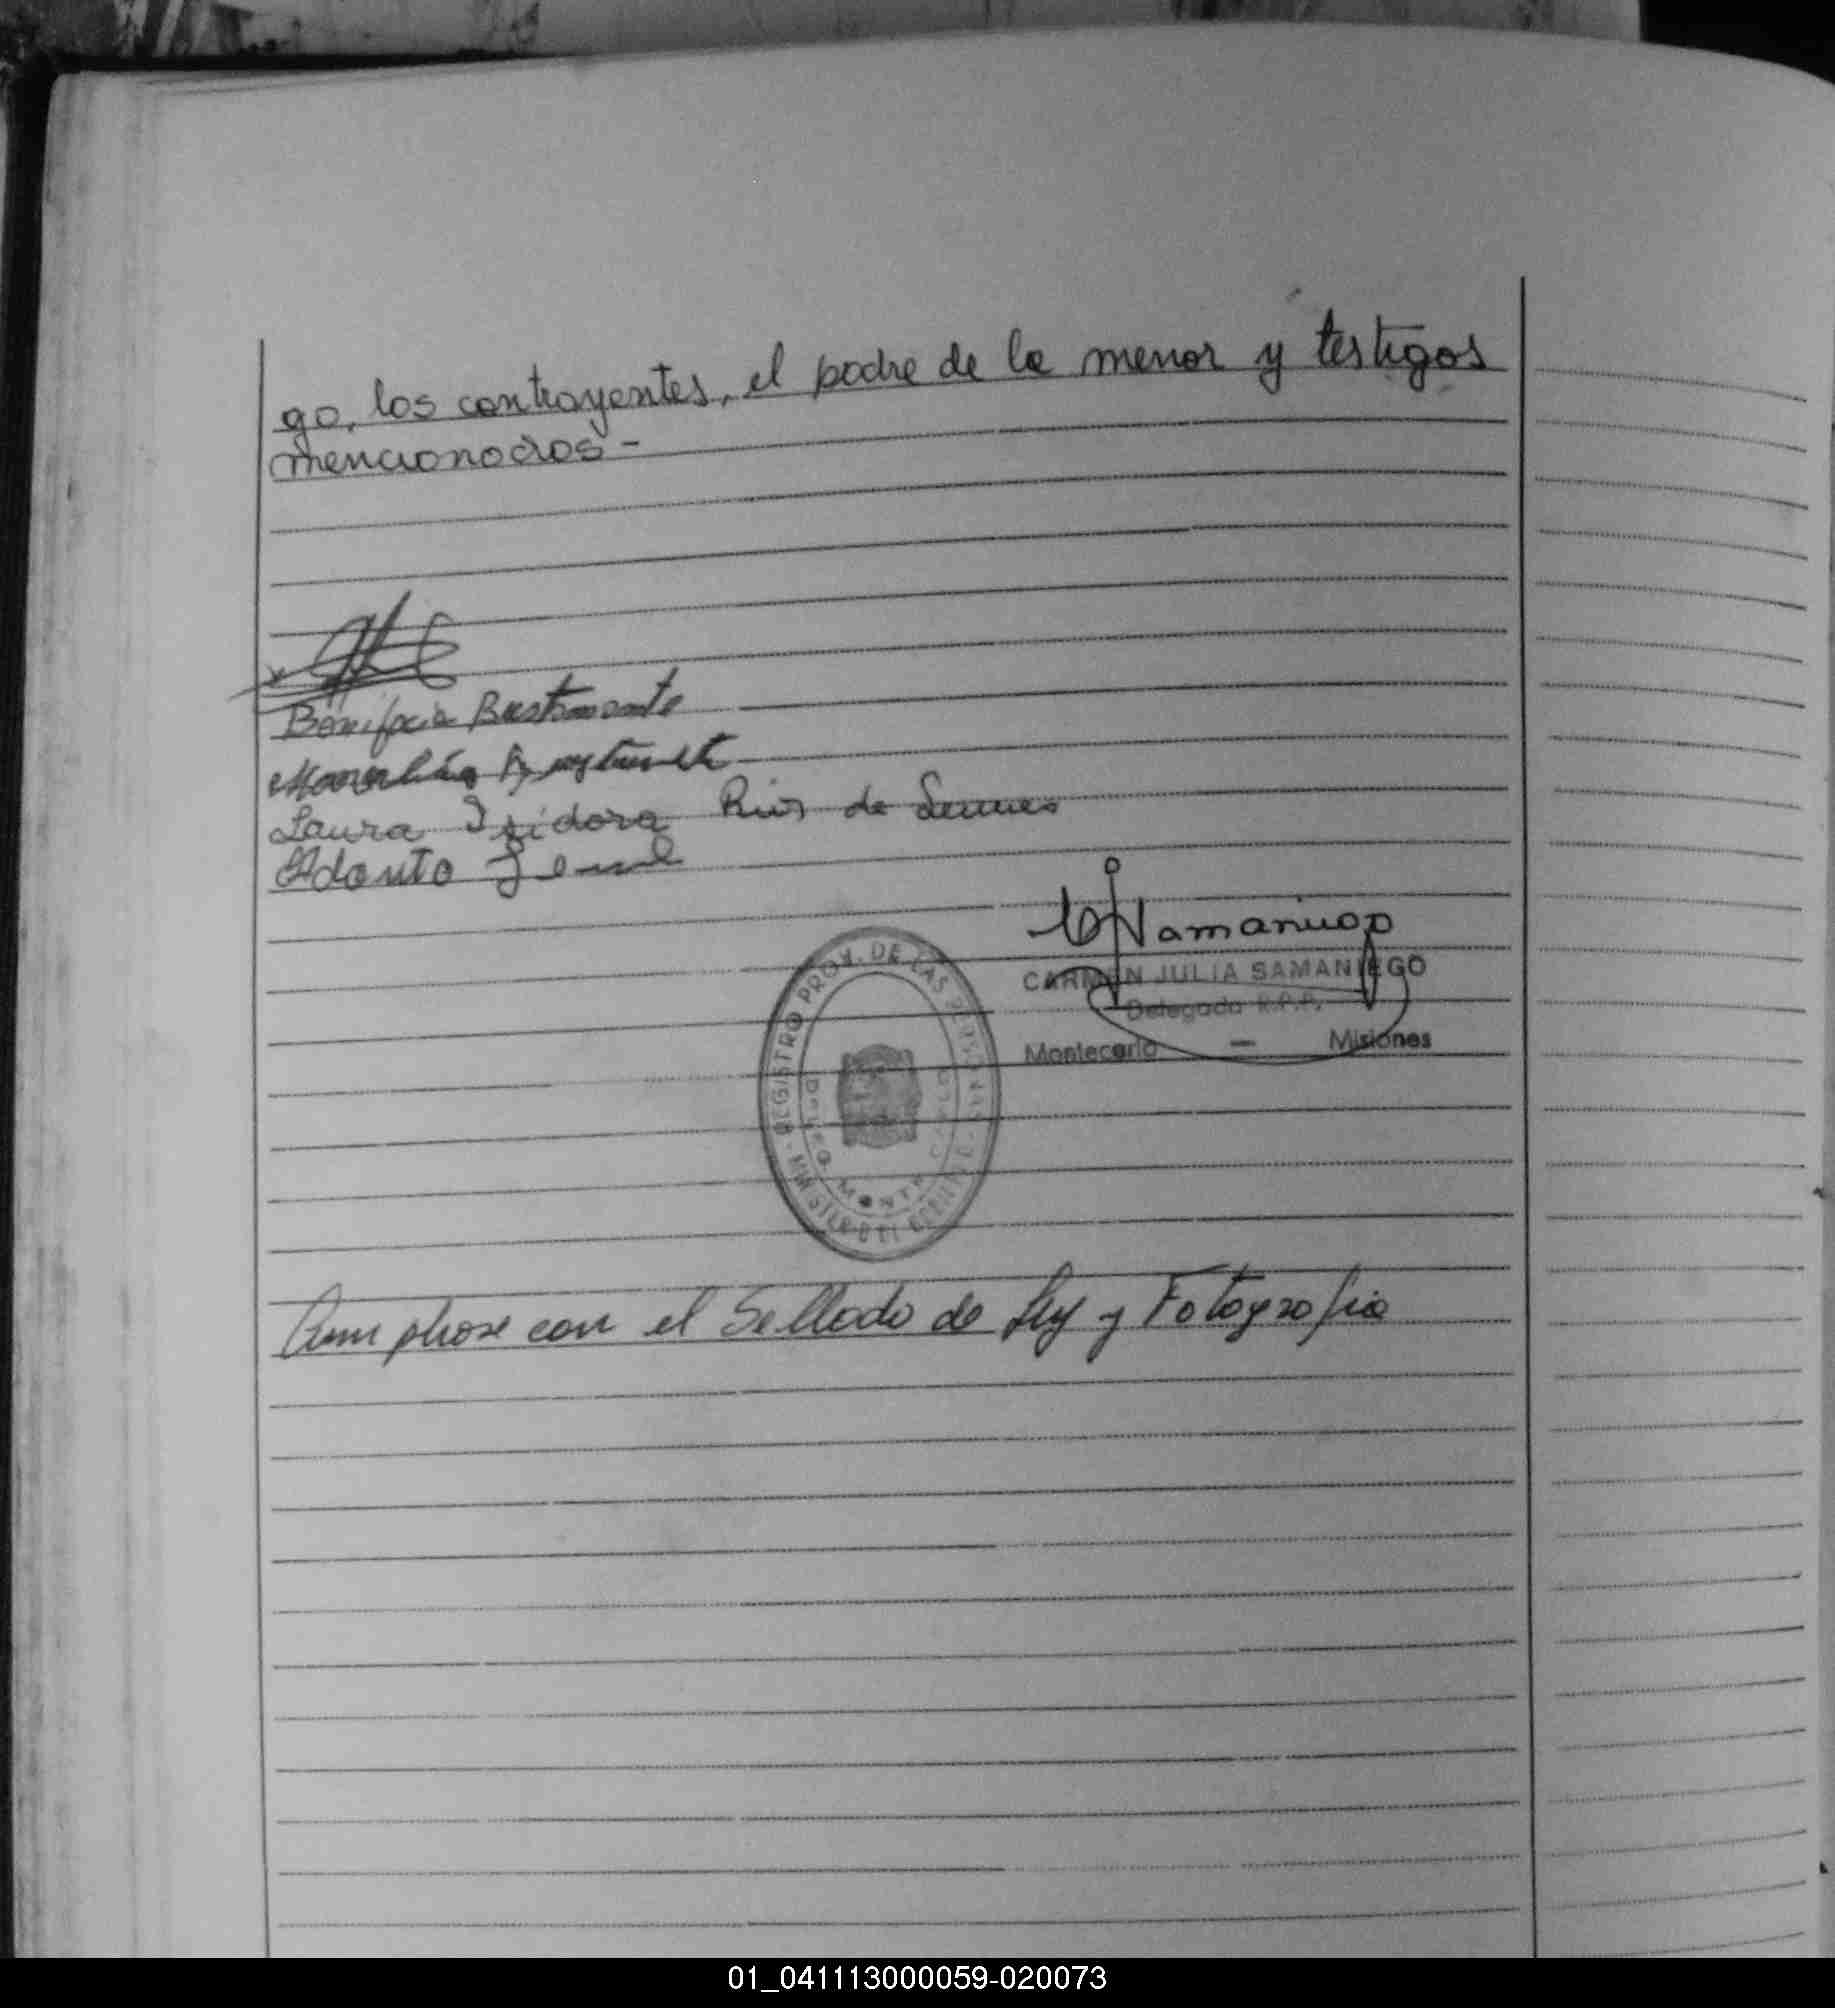 go, los contrayentes, el padre de la menor y testigos
mencionados -
Bonifacia Bustamante
Laura Isidora Rios de
Adauto
CARMEN JULIA SAMANIEGO
Delegada R.P.P.
Montecarlo - Misiones
REGISTRO PROV. DE LAS PERSONAS
MINISTERIO DE GOBIERNO
MONTE CARLO
Cumplase con el Sellado de Ley y Fotografia
01_041113000059-020073